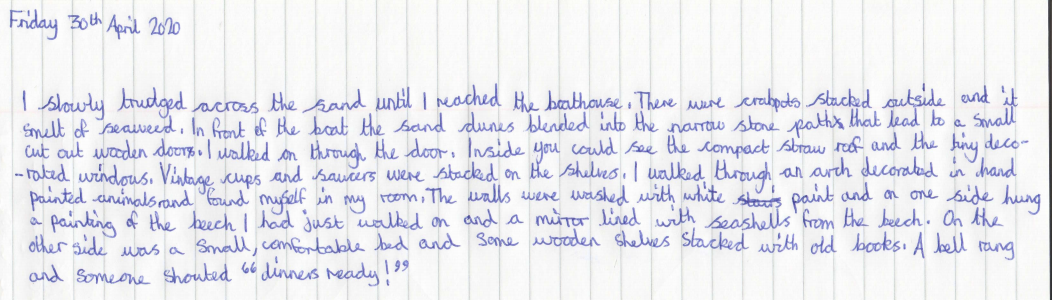 Friday 30th April 2020
I slowly trudged across the sand until I reached the boathouse. There were crabpots stacked outside and it
smelt of seaweed. In front of the boat the sand dunes blended into the narrow stone paths that lead to a small
cut out wooden doors. I walked on through the door. Inside you could see the compact straw roof and the tiny deco-
-rated windows. Vintage cups and saucers were stacked on the shelves. I walked through an arch decorated in hand
painted animals and found myself in my room. The walls were washed with white paint and on one side hung
a painting of the beech I had just walked on and a mirror lined with seashells from the beech. On the
other side was a small, comfortable bed and some wooden shelves stacked with old books. A bell rang
and someone shouted “dinners ready!”